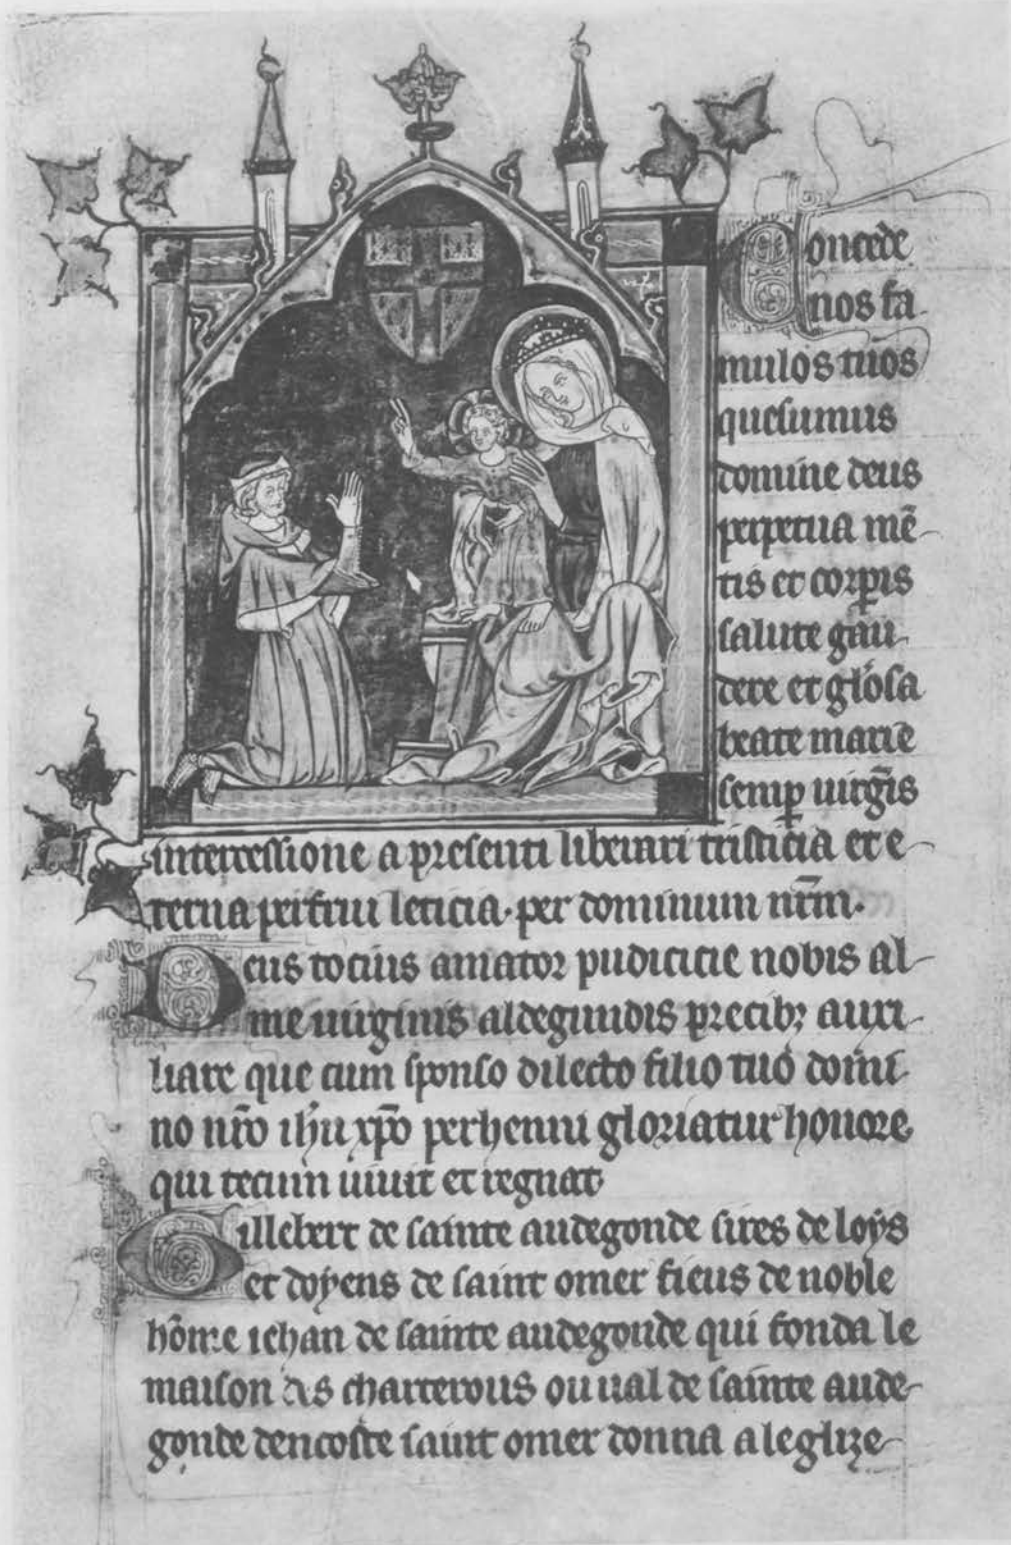 Concede
nos fa
mulos tuos
quesumus
domine deus
perpetua mē
tis et corꝑis
salute gau
dere et gl̄osa
beate marie
semꝑ uirgīs
intercessione a presenti liberari tristicia et e
terna perfrui leticia. per dominum nr̄m.
Deus tocius amator pudicicie nobis al
me uirginis aldegundis precibꝫ auxi
liare que cum sponso dilecto filio tuo domi
no nr̄o ih̄u xp̄o perhenni gloriatur honore
qui tecum uiuit et regnat
Gillebert de sainte audegonde sires de loys
et doyens de saint omer fieus de noble
hōme iehan de sainte audegonde qui fonda le
maison des charterous ou ual de sainte aude
gonde dencoste saint omer donna a leglize